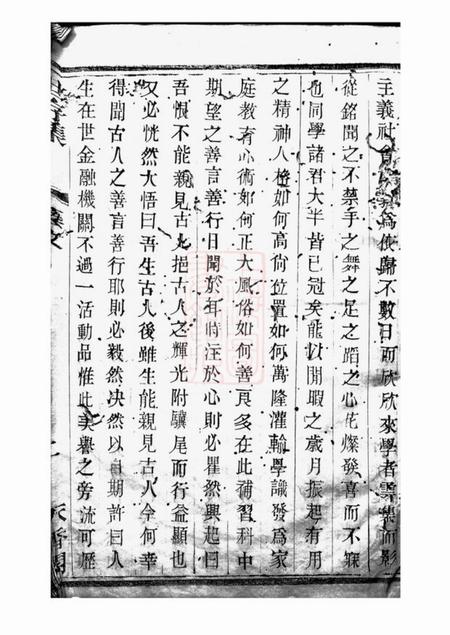 主義社會以為使歸不數日而欣欣來學者雲集而影
從銘聞之不禁手之舞之足之蹈之心花燦發喜而不寐
也同學諸君大半皆已冠矣能以閒暇之歲月振起有用
之精神人格如何高尚位置如何萬隆灌輸學識發為家
庭教育心術如何正大風俗如何善良多在此補習科中
期望之善言善行日聞於耳時注於心則必瞿然興起曰
吾恨不能親見古人挹古人之輝光附驥尾而行益顯也
又必恍然大悟曰吾生古人後雖生能親見古人今何幸
得聞古人之善言善行耶則必毅然決然以自期許曰人
生在世金融機關不過一活動品惟此美譽之旁流可歷
集
文
香閣